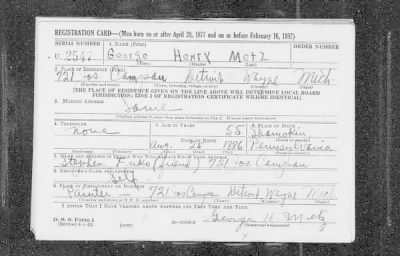 REGISTRATION CARD—(Men born on or after April 28, 1877 and on or before February 16, 1897)
SERIAL NUMBER 1. NAME (Print)
U. 2547 George Henry Metz
2. PLACE OF RESIDENCE (Print)
721 Jos Campau Detroit Wayne Mich
[THE PLACE OF RESIDENCE GIVEN ON THE LINE ABOVE WILL DETERMINE LOCAL BOARD
JURISDICTION; LINE 2 OF REGISTRATION CERTIFICATE WILL BE IDENTICAL]
3. MAILING ADDRESS
Same
4. TELEPHONE 5. AGE IN YEARS
none 55 Shamokin
Aug. 25 1886 Pennsylvania
7. NAME AND ADDRESS OF PERSON WHO WILL ALWAYS KNOW YOUR ADDRESS
Stephen (friend) 721 Jos Campau
8. EMPLOYER'S NAME AND ADDRESS
Self
9. PLACE OF EMPLOYMENT OR BUSINESS
Painter — 721 Jos Campau Detroit Wayne Mich
I AFFIRM THAT I HAVE VERIFIED ABOVE ANSWERS AND THAT THEY ARE TRUE.
D. S. S. Form 1
George H. Metz